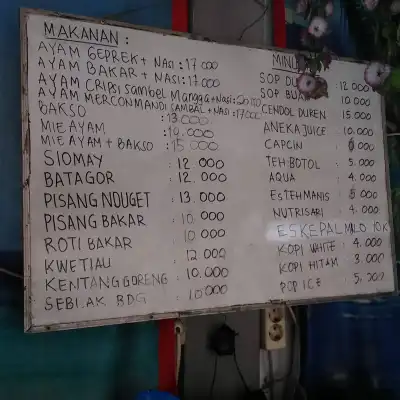 MAKANAN :
AYAM GEPREK + NASI : 17.000
AYAM BAKAR + NASI : 17.000
AYAM CRIPSI SAMBEL MANGGA + NASI : 20.000
AYAM MERCON MANDI SAMBAL + NASI : 17.000
BAKSO : 13.000
MIE AYAM : 10.000
MIE AYAM + BAKSO : 15.000
SIOMAY 12.000
BATAGOR : 12.000
PISANG NOUGET : 13.000
PISANG BAKAR : 10.000
ROTI BAKAR 10.000
KWETIAU : 12.000
KENTANG GORENG : 10.000
SEBLAK BDG : 10.000
MINU
SOP DU 12.000
SOP BUA 10.000
CENDOL DUREN 15.000
ANEKA JUICE : 10.000
CAPCIN
TEH BOTOL : 5.000
AQUA : 4.000
ES TEH MANIS : 5.000
NUTRISARI : 4.000
ES KEPAL MILO 10K
KOPI WHITE : 4.000
KOPI HITAM : 3.000
POP ICE : 5.000